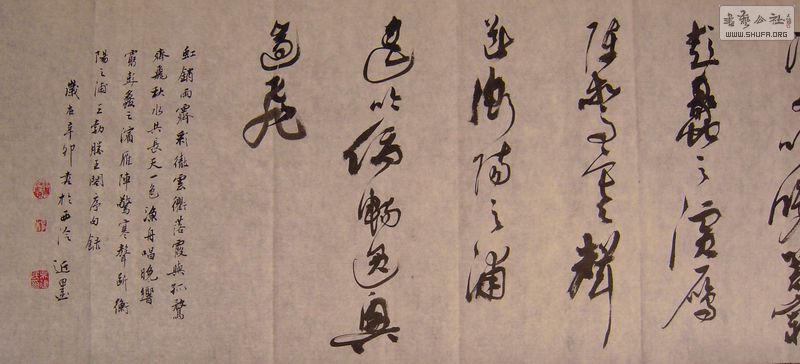 晚響窮
彭蠡之濱雁
陣驚寒聲
斷衡陽之浦
遙吟俯暢逸興
遄飛
虹銷雨霽彩徹雲衢落霞與孤鶩
齊飛秋水共長天一色漁舟唱晚響
窮彭蠡之濱雁陣驚寒聲斷衡
陽之浦王勃滕王閣序句錄
歲在辛卯書於西泠 近墨
書藝公社
WWW.SHUFA.ORG